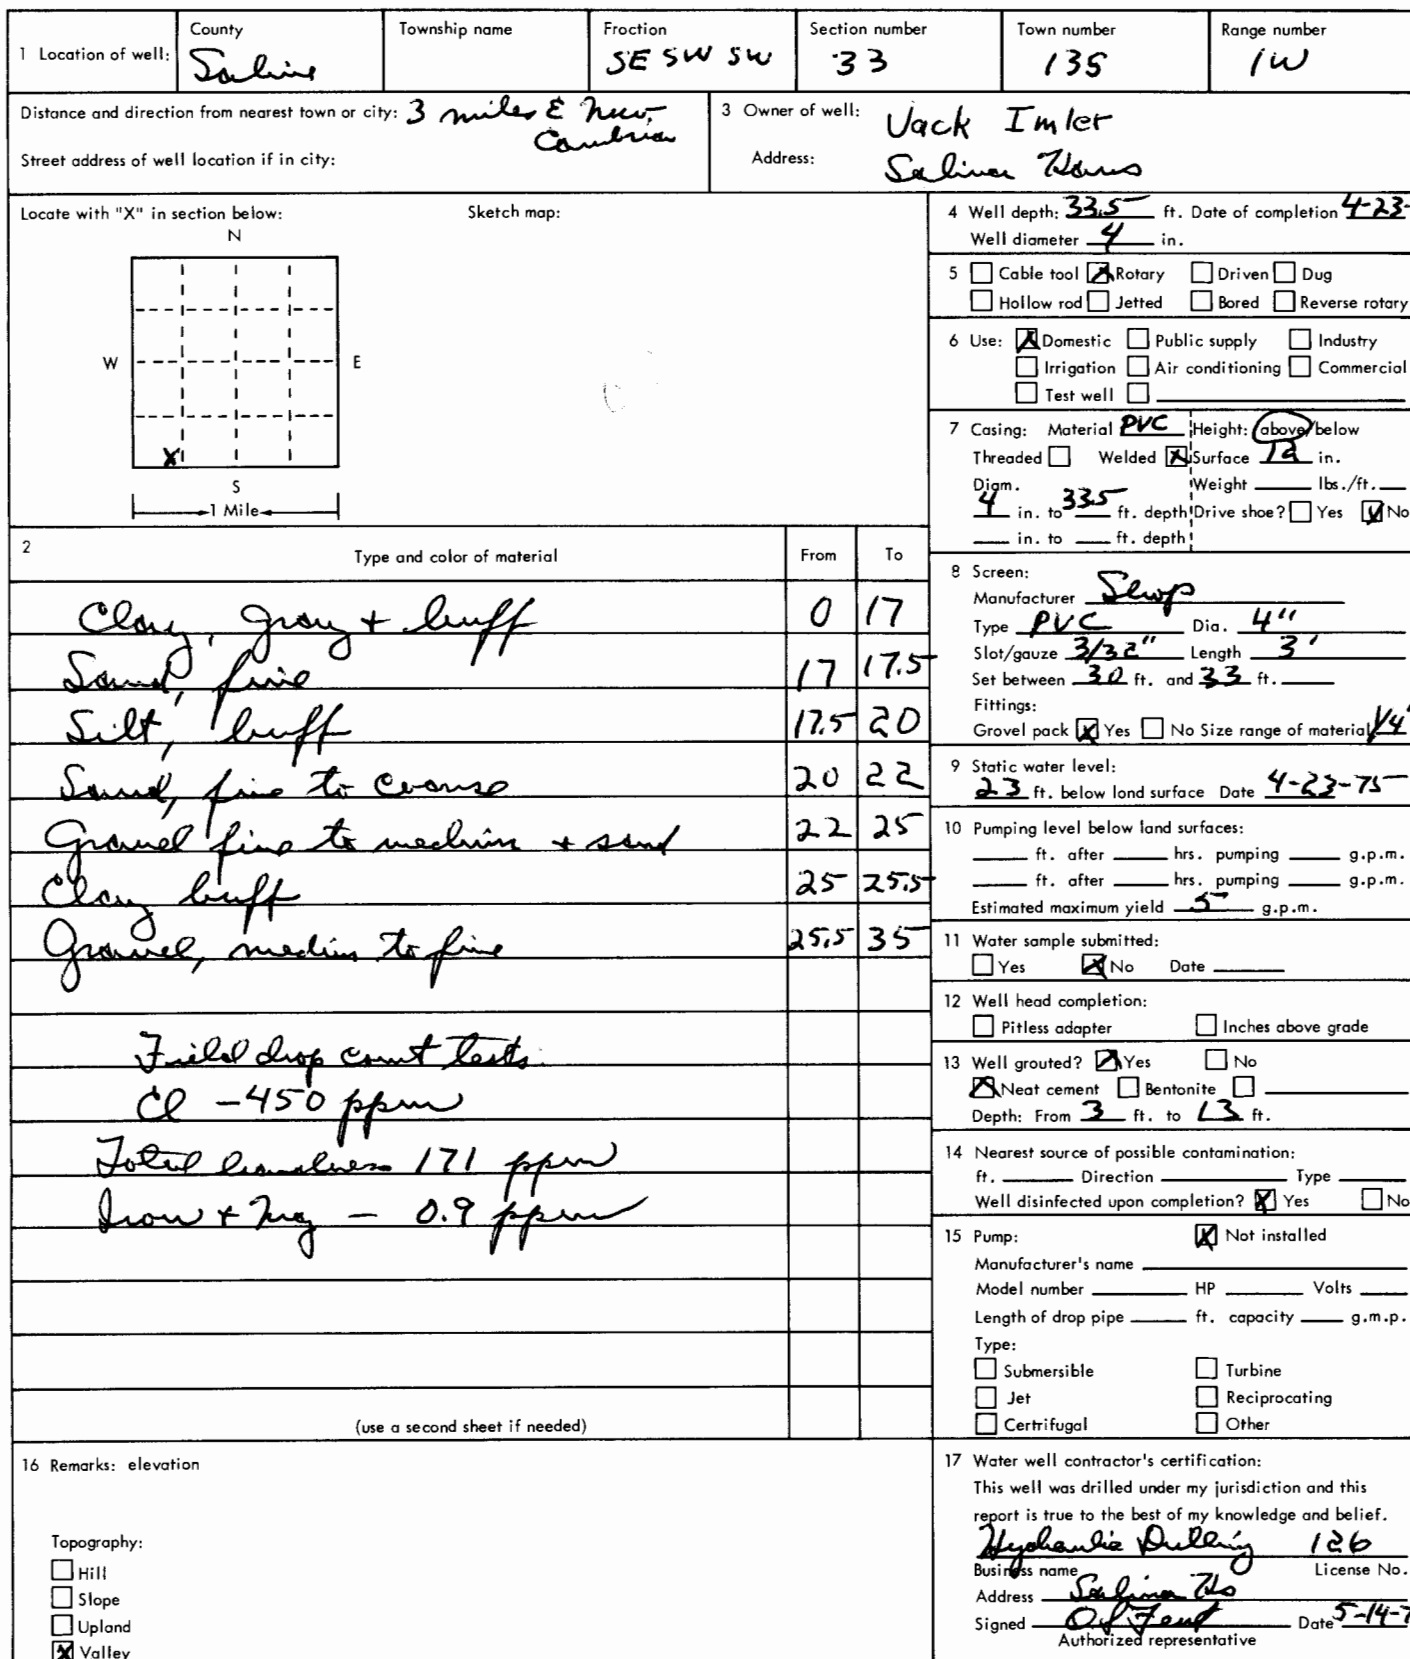 1 Location of well: County Saline Township name Fraction SE SW SW Section number 33 Town number 13S Range number 1W
Distance and direction from nearest town or city: 3 miles E New Cambria
Street address of well location if in city:
3 Owner of well: Jack Imler
Address: Salina Kans
Locate with "X" in section below: Sketch map:
N
W E
X
S
1 Mile
2 Type and color of material From To
Clay, gray + buff 0 17
Sand, fine 17 17.5
Silt, buff 17.5 20
Sand, fine to coarse 20 22
Gravel fine to medium + sand 22 25
Clay buff 25 25.5
Gravel, medium to fine 25.5 35
Field drop count tests
Cl - 450 ppm
Total hardness 171 ppm
Iron + Mg - 0.9 ppm
(use a second sheet if needed)
4 Well depth: 33.5 ft. Date of completion 4-23-
Well diameter 4 in.
5 Cable tool X Rotary Driven Dug
Hollow rod Jetted Bored Reverse rotary
6 Use: X Domestic Public supply Industry
Irrigation Air conditioning Commercial
Test well
7 Casing: Material PVC Height: above/below
Threaded Welded X Surface 12 in.
Diam. Weight lbs./ft.
4 in. to 33.5 ft. depth Drive shoe? Yes X No
in. to ft. depth
8 Screen:
Manufacturer
Type PVC Dia. 4"
Slot/gauze 3/32" Length 3'
Set between 30 ft. and 33 ft.
Fittings:
Gravel pack X Yes No Size range of material 1/4"
9 Static water level:
23 ft. below land surface Date 4-23-75
10 Pumping level below land surfaces:
ft. after hrs. pumping g.p.m.
ft. after hrs. pumping g.p.m.
Estimated maximum yield 5 g.p.m.
11 Water sample submitted:
Yes X No Date
12 Well head completion:
Pitless adapter Inches above grade
13 Well grouted? X Yes No
X Neat cement Bentonite
Depth: From 3 ft. to 13 ft.
14 Nearest source of possible contamination:
ft. Direction Type
Well disinfected upon completion? X Yes No
15 Pump: X Not installed
Manufacturer's name
Model number HP Volts
Length of drop pipe ft. capacity g.m.p.
Type:
Submersible Turbine
Jet Reciprocating
Certrifugal Other
16 Remarks: elevation
Topography:
Hill
Slope
Upland
X Valley
17 Water well contractor's certification:
This well was drilled under my jurisdiction and this
report is true to the best of my knowledge and belief.
Hydraulic Drilling 126
Business name License No.
Address Salina Ks
Signed O S Fent Date 5-14-7
Authorized representative